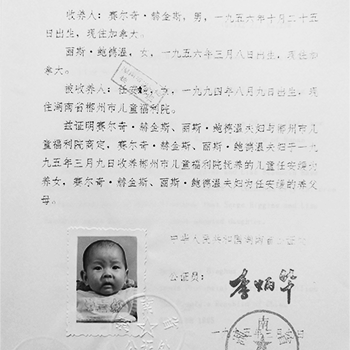 收养人：赛尔奇·赫金斯，男，一九五六年十月二十五
日出生，现住加拿大。
丽斯·鲍德温，女，一九五六年三月八日出生，现住
加拿大。
被收养人：任安 ，女，一九九四年八月九日出生，现
住湖南省郴州市儿童福利院。
兹证明赛尔奇·赫金斯、丽斯·鲍德温夫妇与郴州市儿
童福利院商定，赛尔奇·赫金斯、丽斯·鲍德温夫妇于一九
九五年三月九日收养郴州市儿童福利院抚养的儿童任安 为
养女，赛尔奇·赫金斯、丽斯·鲍德温夫妇为任安 的养父
母。
中华人民共和国湖南省
公证员：李炳华
一九九五年